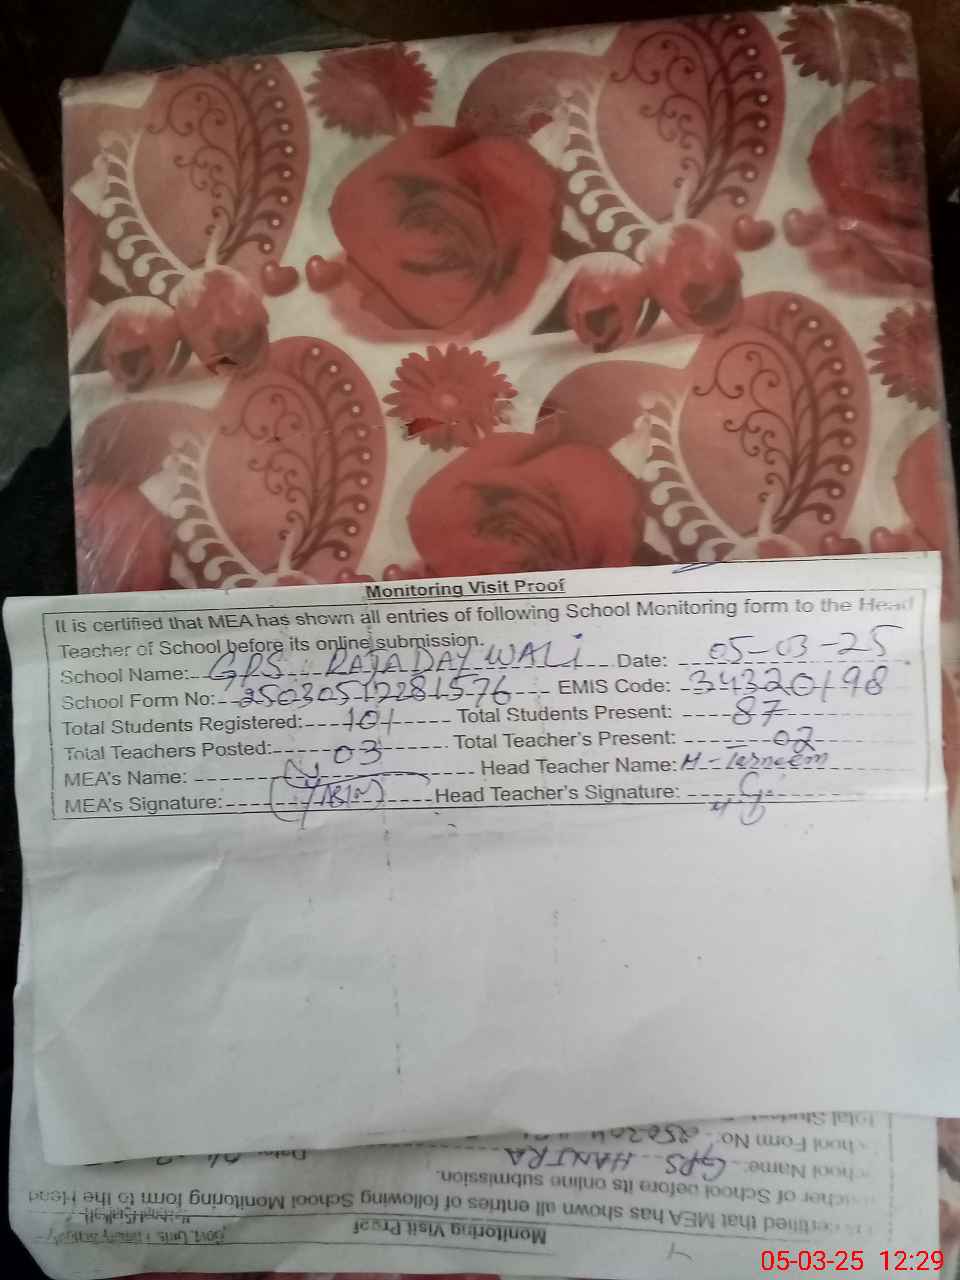 Monitoring Visit Proof
It is certified that MEA has shown all entries of following School Monitoring form to the Head
Teacher of School before its online submission.
School Name: GPS RAJADAY WALI Date: 05-03-25
School Form No: EMIS Code: 34320198
Total Students Registered: 101 Total Students Present: 87
Total Teachers Posted: 03 Total Teacher's Present: 02
MEA's Name: Head Teacher Name: M-
MEA's Signature: Head Teacher's Signature:
Monitoring Visit Proof
certified that MEA has shown all entries of following School Monitoring form to the Head
Teacher of School before its online submission.
School Name: GPS HANJRA Date:
School Form No:
Total
05-03-25 12:29